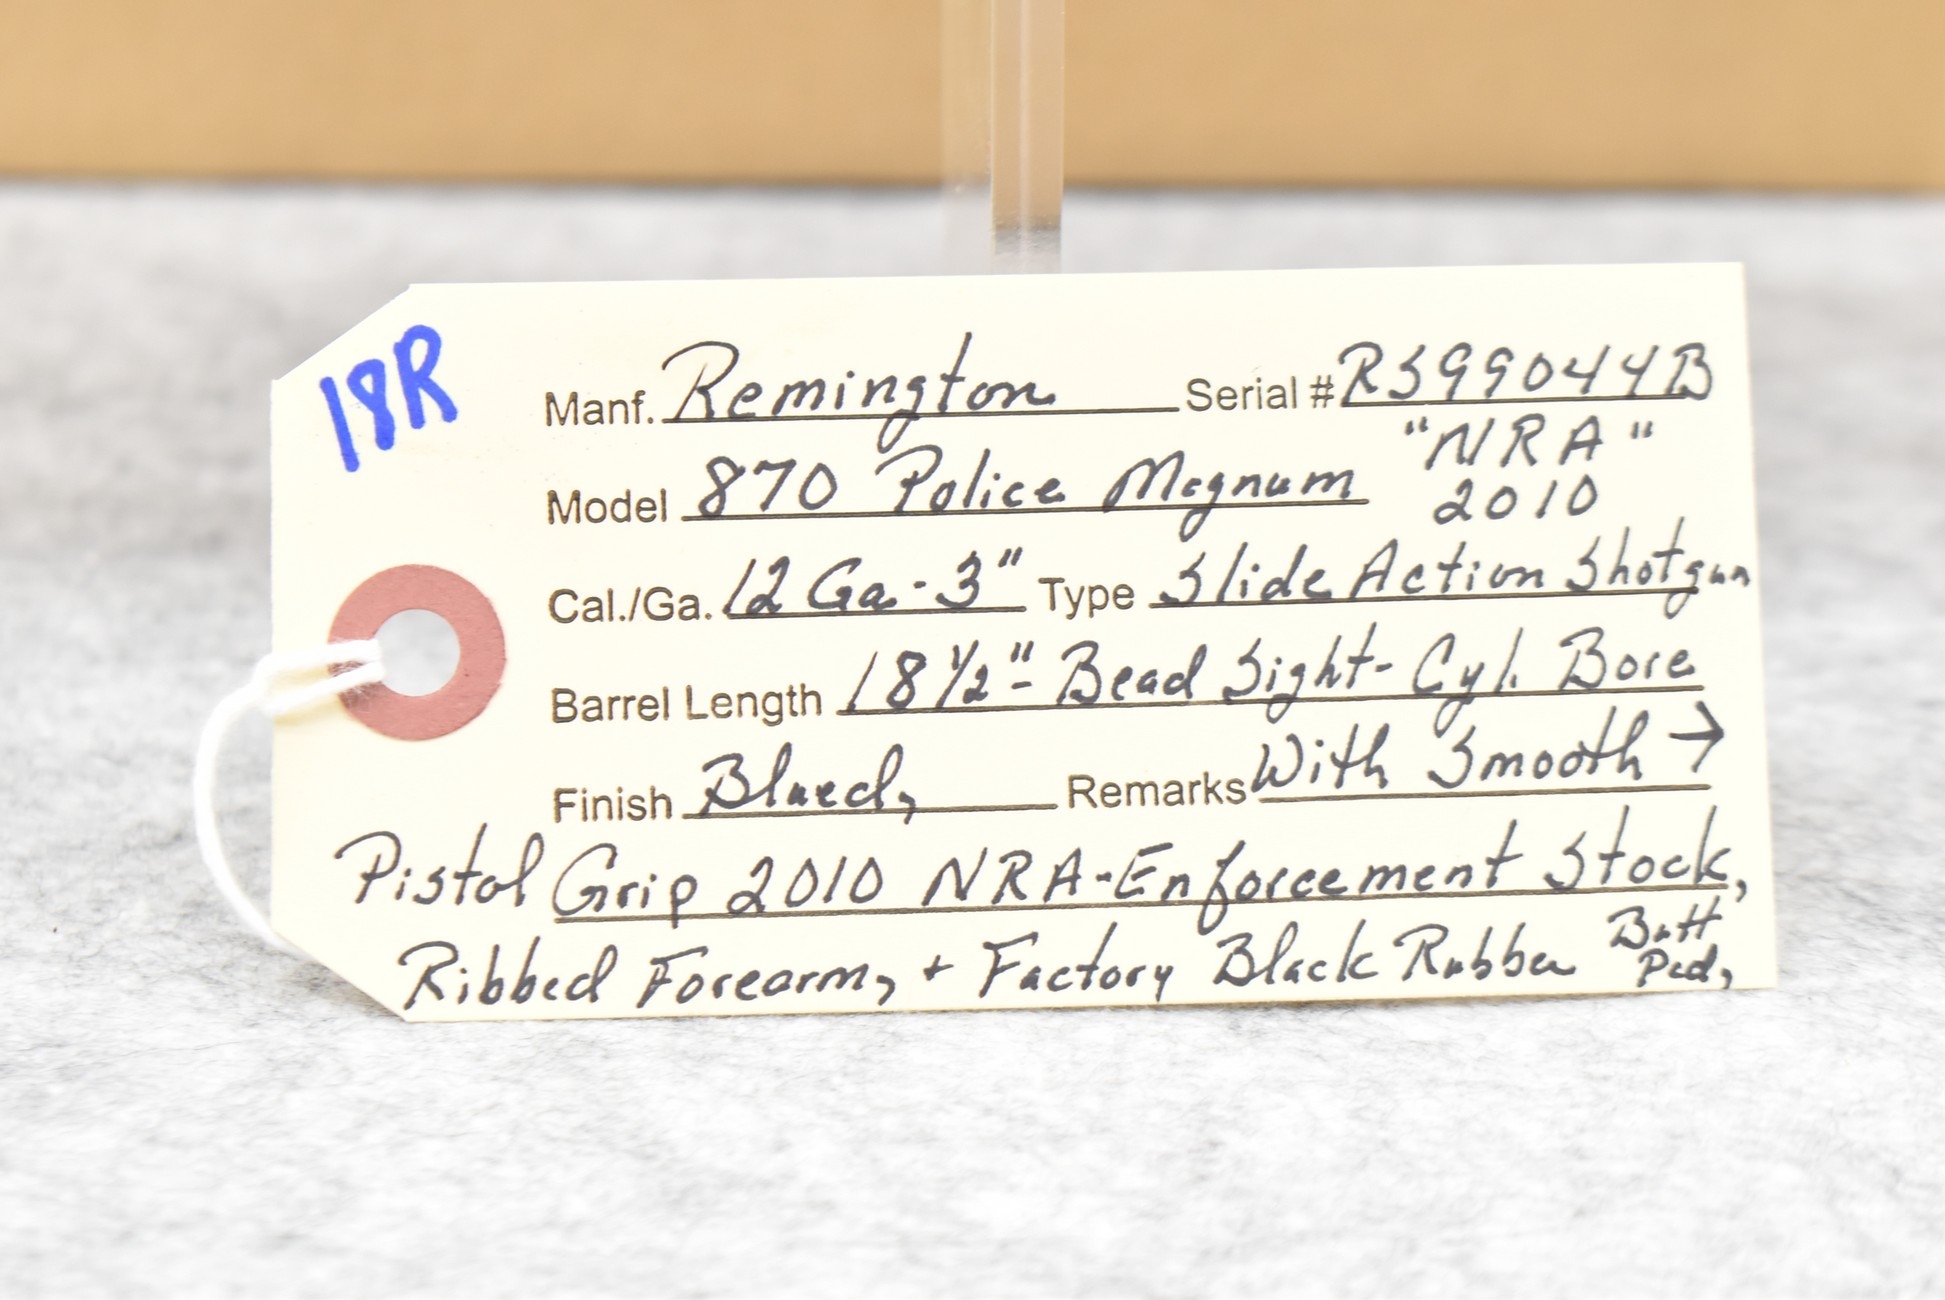 18R
Manf. Remington Serial # RS99044B
Model 870 Police Magnum "NRA"
2010
Cal./Ga. 12 Ga - 3" Type Slide Action Shotgun
Barrel Length 18 1/2" - Bead Sight - Cyl. Bore
Finish Blued, Remarks With Smooth →
Pistol Grip 2010 NRA-Enforcement Stock,
Ribbed Forearm, + Factory Black Rubber Butt
Pad,